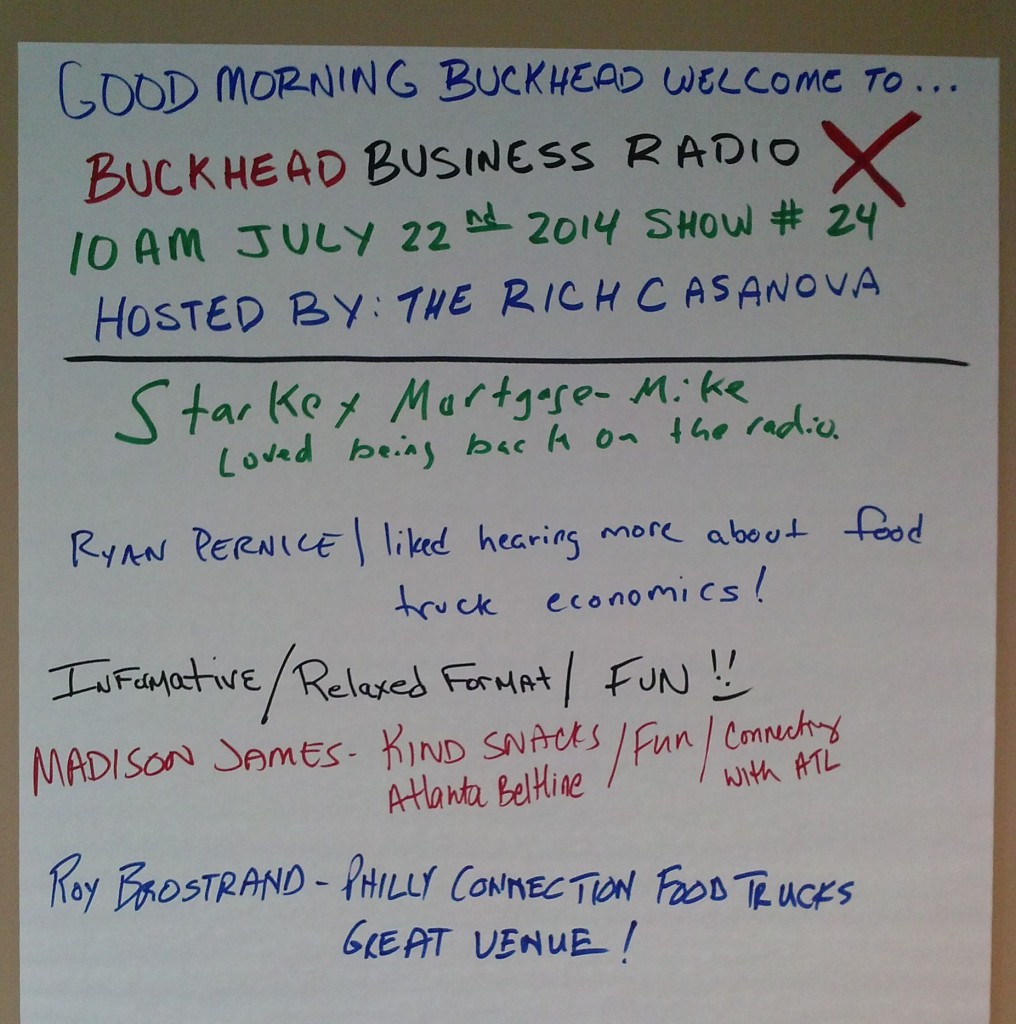 GOOD MORNING BUCKHEAD WELCOME TO...
BUCKHEAD BUSINESS RADIO X
10 AM JULY 22nd 2014 SHOW # 24
HOSTED BY: THE RICH CASANOVA
Starkey Mortgage- Mike
Loved being back on the radio.
RYAN PERNICE / liked hearing more about food
truck economics!
INFOMATIVE / Relaxed FORMAT / FUN!!
MADISON JAMES - KIND SNACKS / Fun / Connecting
Atlanta Beltline with ATL
ROY BROSTRAND - PHILLY CONNECTION FOOD TRUCKS
GREAT VENUE!